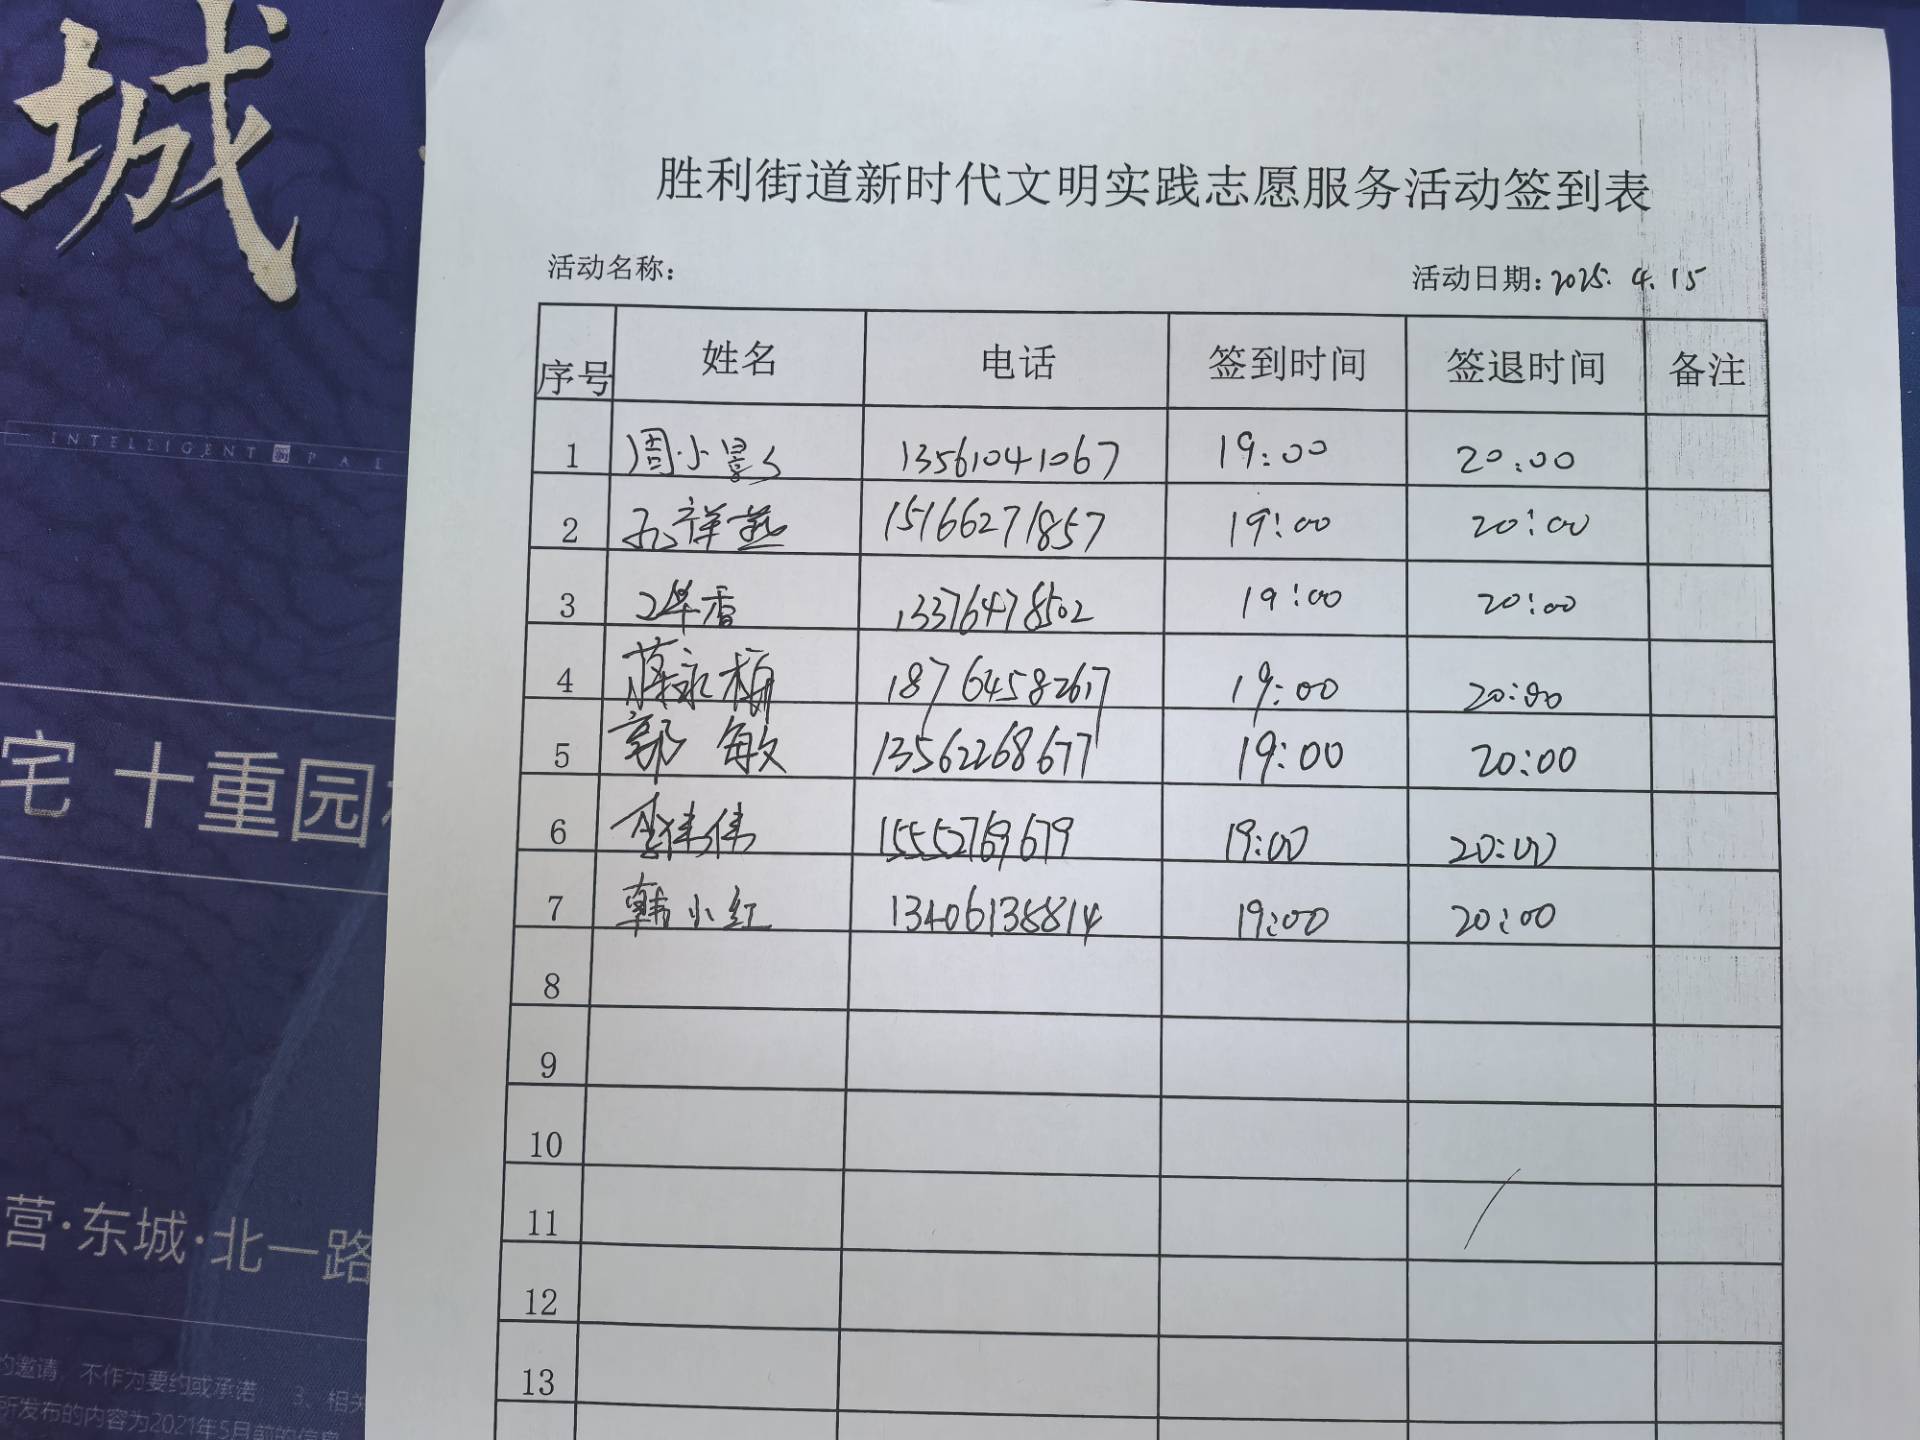 城
INTELLIGENT PAL
宅 十重园
营·东城·北一路
的邀请，不作为要约或承诺 3、相关
所发布的内容为2021年5月前的信息
胜利街道新时代文明实践志愿服务活动签到表
活动名称： 活动日期：2025.4.15
序号 姓名 电话 签到时间 签退时间 备注
1 周小影 13561041067 19:00 20:00
2 孙祥燕 15166271857 19:00 20:00
3 13376478502 19:00 20:00
4 蒋永梅 18764582617 19:00 20:00
5 郭敏 13562268677 19:00 20:00
6 15552769679 19:00 20:00
7 韩小红 13406135814 19:00 20:00
8
9
10
11
12
13